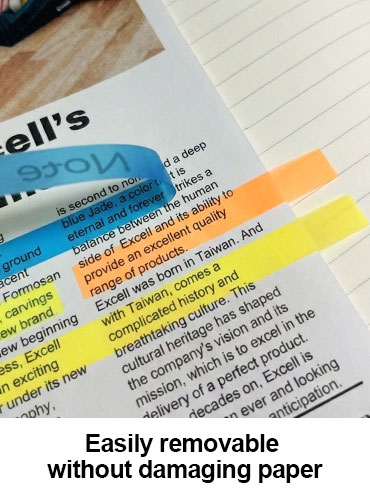 cell's
Note
is second to non d a deep
blue Jade, a color t is
eternal and forever trikes a
balance between the human
side of Excell and its ability to
provide an excellent quality
range of products.
Excell was born in Taiwan. And
with Taiwan, comes a
complicated history and
breathtaking culture. This
cultural heritage has shaped
the company's vision and its
mission, which is to excel in the
delivery of a perfect product.
decades on, Excell is
ever and looking
anticipation.
ground
acent
Formosan
carvings
ew brand
ew beginning
ess, Excell
n exciting
under its new
ophy,
Easily removable
without damaging paper